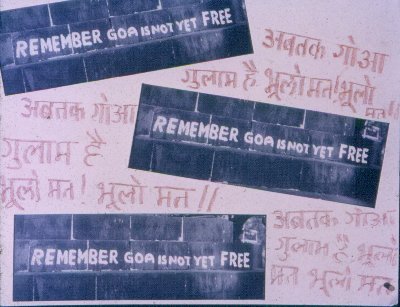 REMEMBER GOA IS NOT YET FREE
अबतक गोआ
गुलाम है भूलो मत! भूलो
मत!!
अबतक गोआ
गुलाम है
भूलो मत! भूलो मत!!
REMEMBER GOA IS NOT YET FREE
अबतक गोआ
गुलाम है. भूलो
मत भूलो मत
REMEMBER GOA IS NOT YET FREE